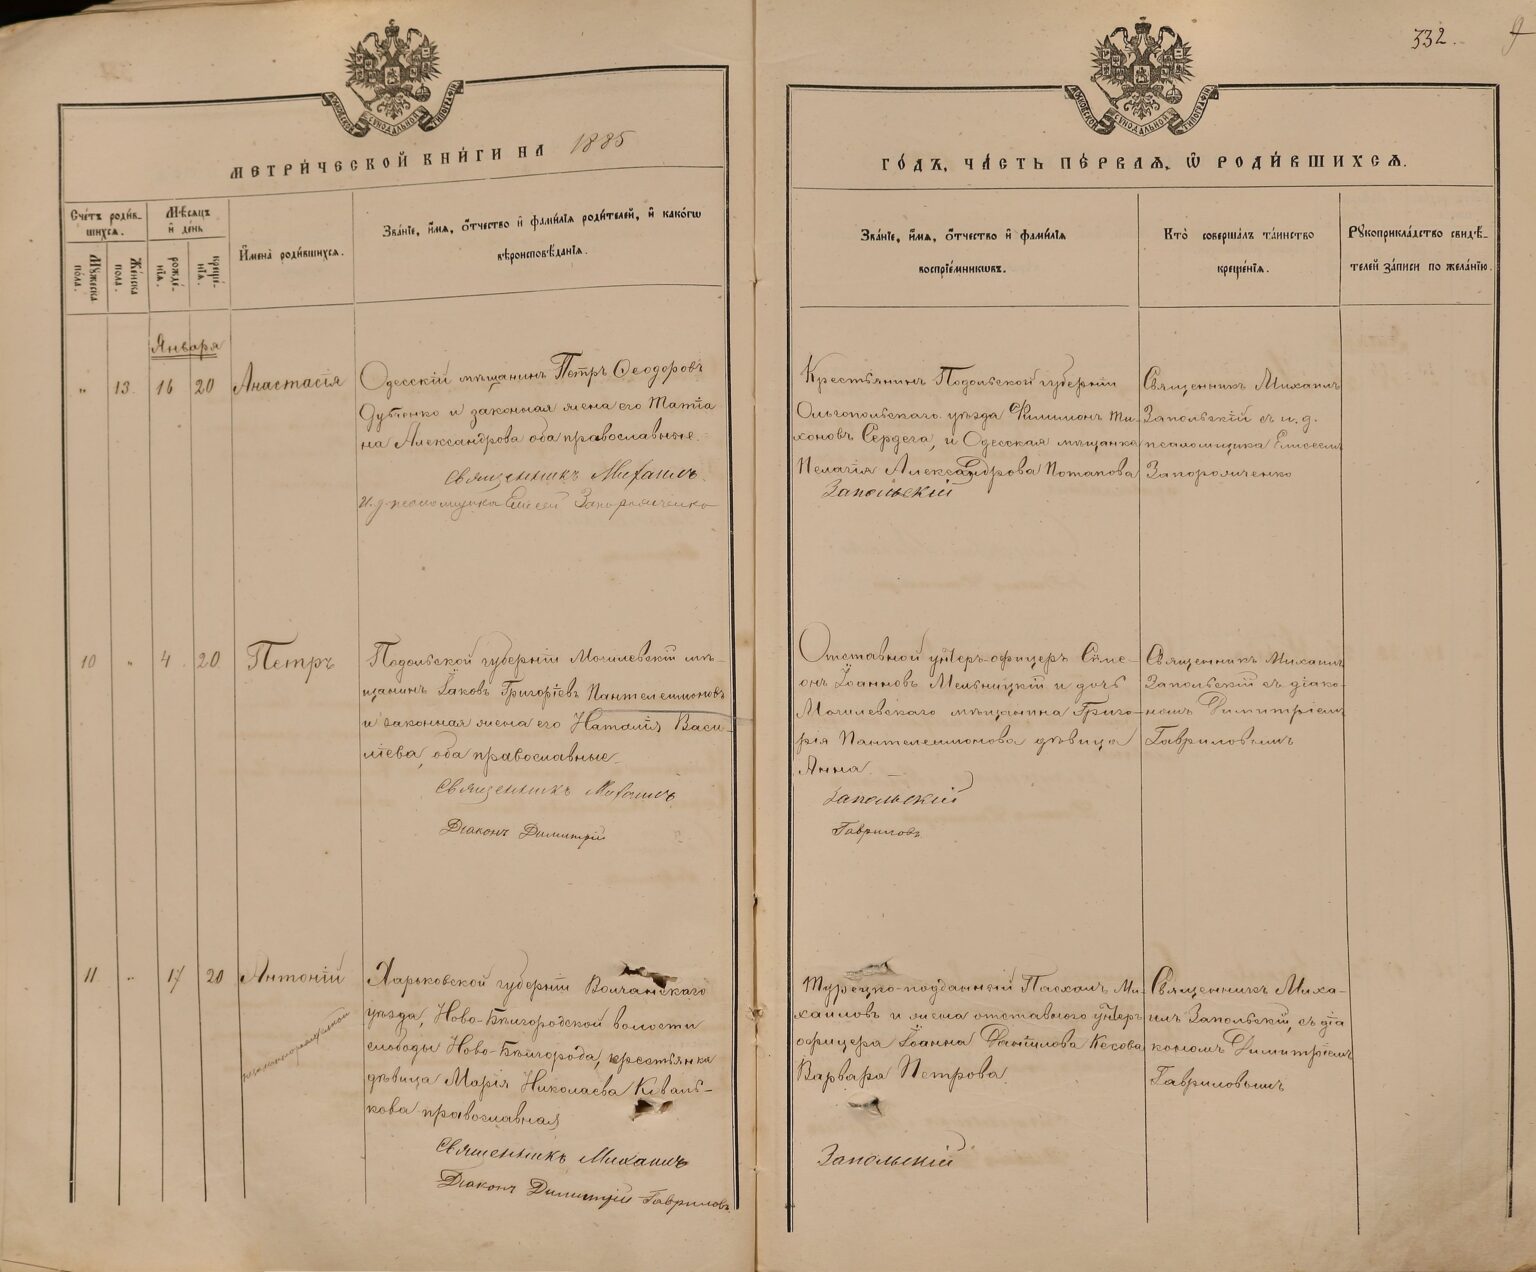 332.
МОСКОВСКОЙ СѴНОДАЛЬНОЙ ТИПОГРАФІИ
МОСКОВСКОЙ СѴНОДАЛЬНОЙ ТИПОГРАФІИ
МЕТРИ́ЧЕСКОЙ КНИ́ГИ НА 1885
ГО́ДЪ, ЧА́СТЬ ПЕ́РВАѦ, Ѡ РОДИ́ВШИХСѦ.
Сче́тъ роди́в-
шихсѧ.
Мѣ́сѧцъ
и҆ де́нь
И҆мена̀ роди́вшихсѧ.
Зва́нїе, и҆́мѧ, ѻ҆́тчество и҆ фами́лїѧ роди́телей, и҆ како́гѡ
вѣроисповѣ́данїѧ.
Мꙋ́жеска
по́ла.
Же́нска
по́ла.
рожде́-
нїѧ.
креще́-
нїѧ.
Зва́нїе, и҆́мѧ, ѻ҆́тчество и҆ фами́лїѧ
воспрїе́мникѡвъ.
Кто̀ соверша́лъ та́инство
креще́нїѧ.
Рꙋкоприкла́дство свидѣ́-
телей за́писи по жела́нїю.
Января
" 13. 16 20 Анастасія
Одесскій мѣщанинъ Петръ Ѳеодоровъ
Дубченко и законная жена его Татіа
на Александрова оба православные.
Священникъ Михаилъ
и. д. псаломщика Елисей Запорожченко
Крестьянинъ Подольской губерніи
Ольгопольскаго уѣзда Филимонъ Ти-
хоновъ Сердега, и Одесская мѣщанка
Пелагія Александрова Потапова
Запольскій
Священникъ Михаилъ
Запольскій съ и. д.
псаломщика Елисеемъ
Запорожченко
10 " 4. 20. Петръ
Подольской губерніи Могилевскій мѣ-
щанинъ Іаковъ Григоріевъ Пантелеимоновъ
и законная жена его Наталія Васи-
ліева, оба православные.
Священникъ Михаилъ
Діаконъ Димитрій
Отставной унтеръ-офицеръ Симе-
онъ Іоанновъ Мельницкій и дочь
Могилевскаго мѣщанина Григо-
рія Пантелеимонова дѣвица
Анна.
Запольскій
Гавриловъ
Священникъ Михаилъ
Запольскій съ діако-
номъ Димитріемъ
Гавриловымъ
11 " 17 20 Антоній
Харьковской губерніи Волчанскаго
уѣзда, Ново-Бѣлгородской волости
слободы Ново-Бѣлгорода, крестьянка
дѣвица Марія Николаева Коваль-
кова православная
Священникъ Михаилъ
Діаконъ Димитрій Гавриловъ
Турецко-подданный Пасхалъ Ми-
хаиловъ и жена отставного унтеръ
офицера Іоанна Данилова Кесова
Варвара Петрова.
Запольскій
Священникъ Миха-
илъ Запольскій, съ діа
кономъ Димитріемъ
Гавриловымъ